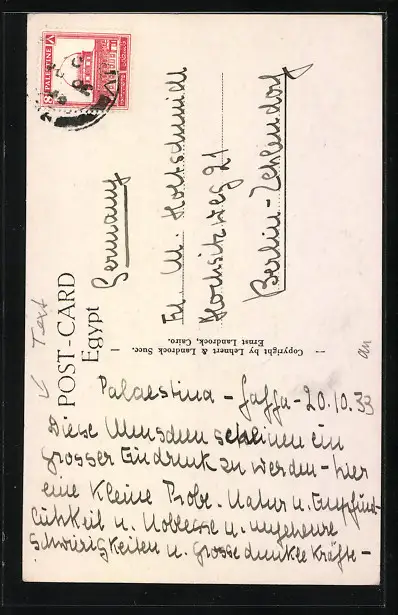 8 PALESTINE
POST-CARD
Egypt
Text
Germany
Frl. M. Holtschmidt
Hochsitzweg 21
Berlin-Zehlendorf
Copyright by Lehnert & Landrock Succ.
Ernst Landrock, Cairo.
an
Palaestina - Jaffa - 20.10.33
Diese Menschen scheinen ein
grosser Eindruck zu werden - hier
eine kleine Probe. Natur u. Empfind-
lichkeit u. Noblesse u. ungeheure
Schwierigkeiten u. grosse dunkle Kräfte -